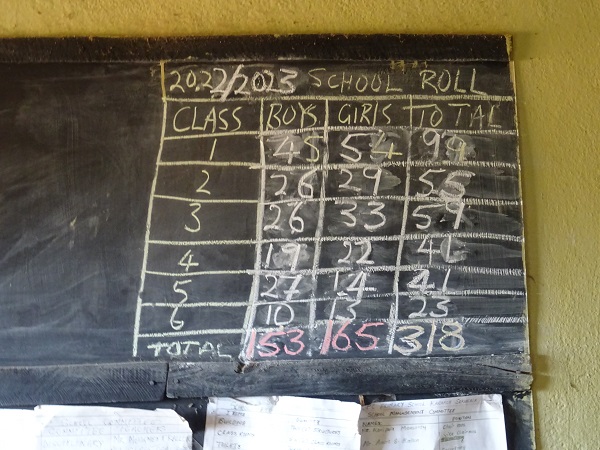 2022/2023 SCHOOL ROLL
CLASS BOYS GIRLS TOTAL
1 45 54 99
2 26 29 55
3 26 33 59
4 19 22 41
5 27 14 41
6 10 13 23
TOTAL 153 165 318
SCHOOL MANAGEMENT COMMITTEE